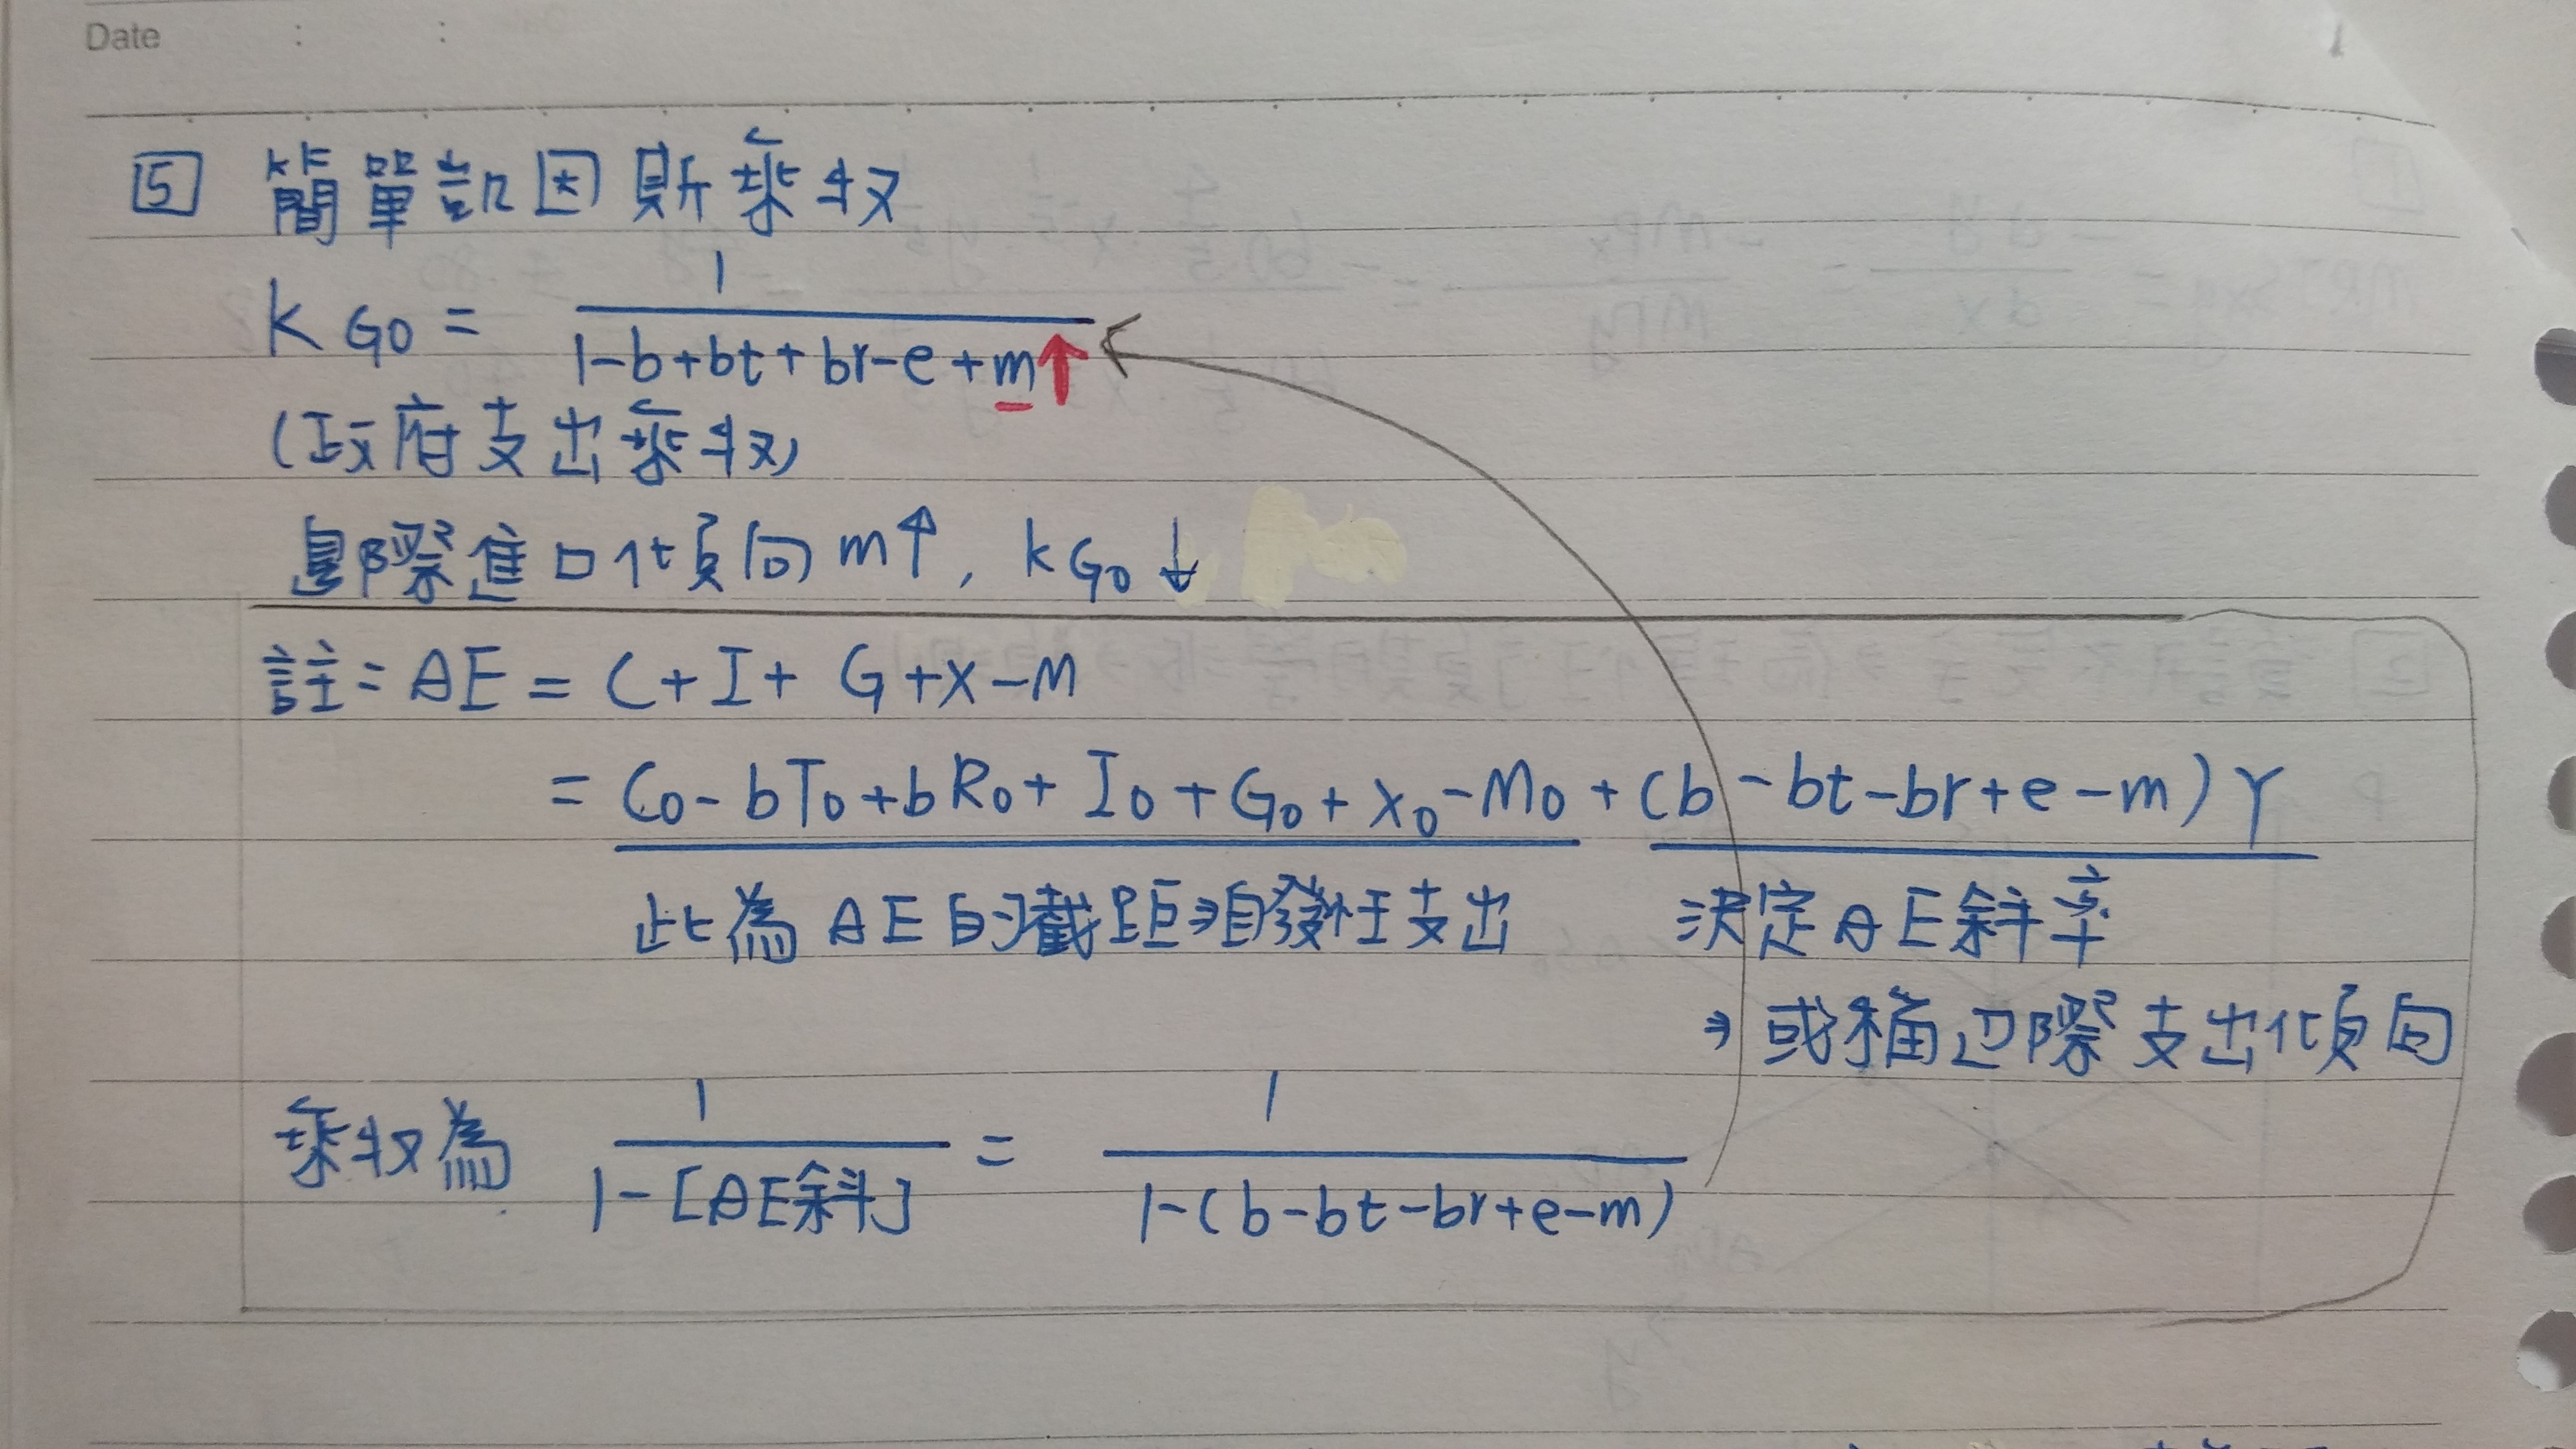 Date : :
5 簡單凱因斯乘数
K G0 = 1 / (1-b+bt+br-e+m↑)
(政府支出乘数)
邊際進口傾向 m↑, K G0 ↓
註: AE = C+I+ G+X-M
= C0 - bT0 + bR0 + I0 + G0 + X0 - M0 + (b - bt - br + e - m) Y
此為 AE 的截距⇒自發性支出 決定AE斜率
⇒ 或稱边際支出傾向
乘数為 1 / (1-[AE斜]) = 1 / (1-(b-bt-br+e-m))